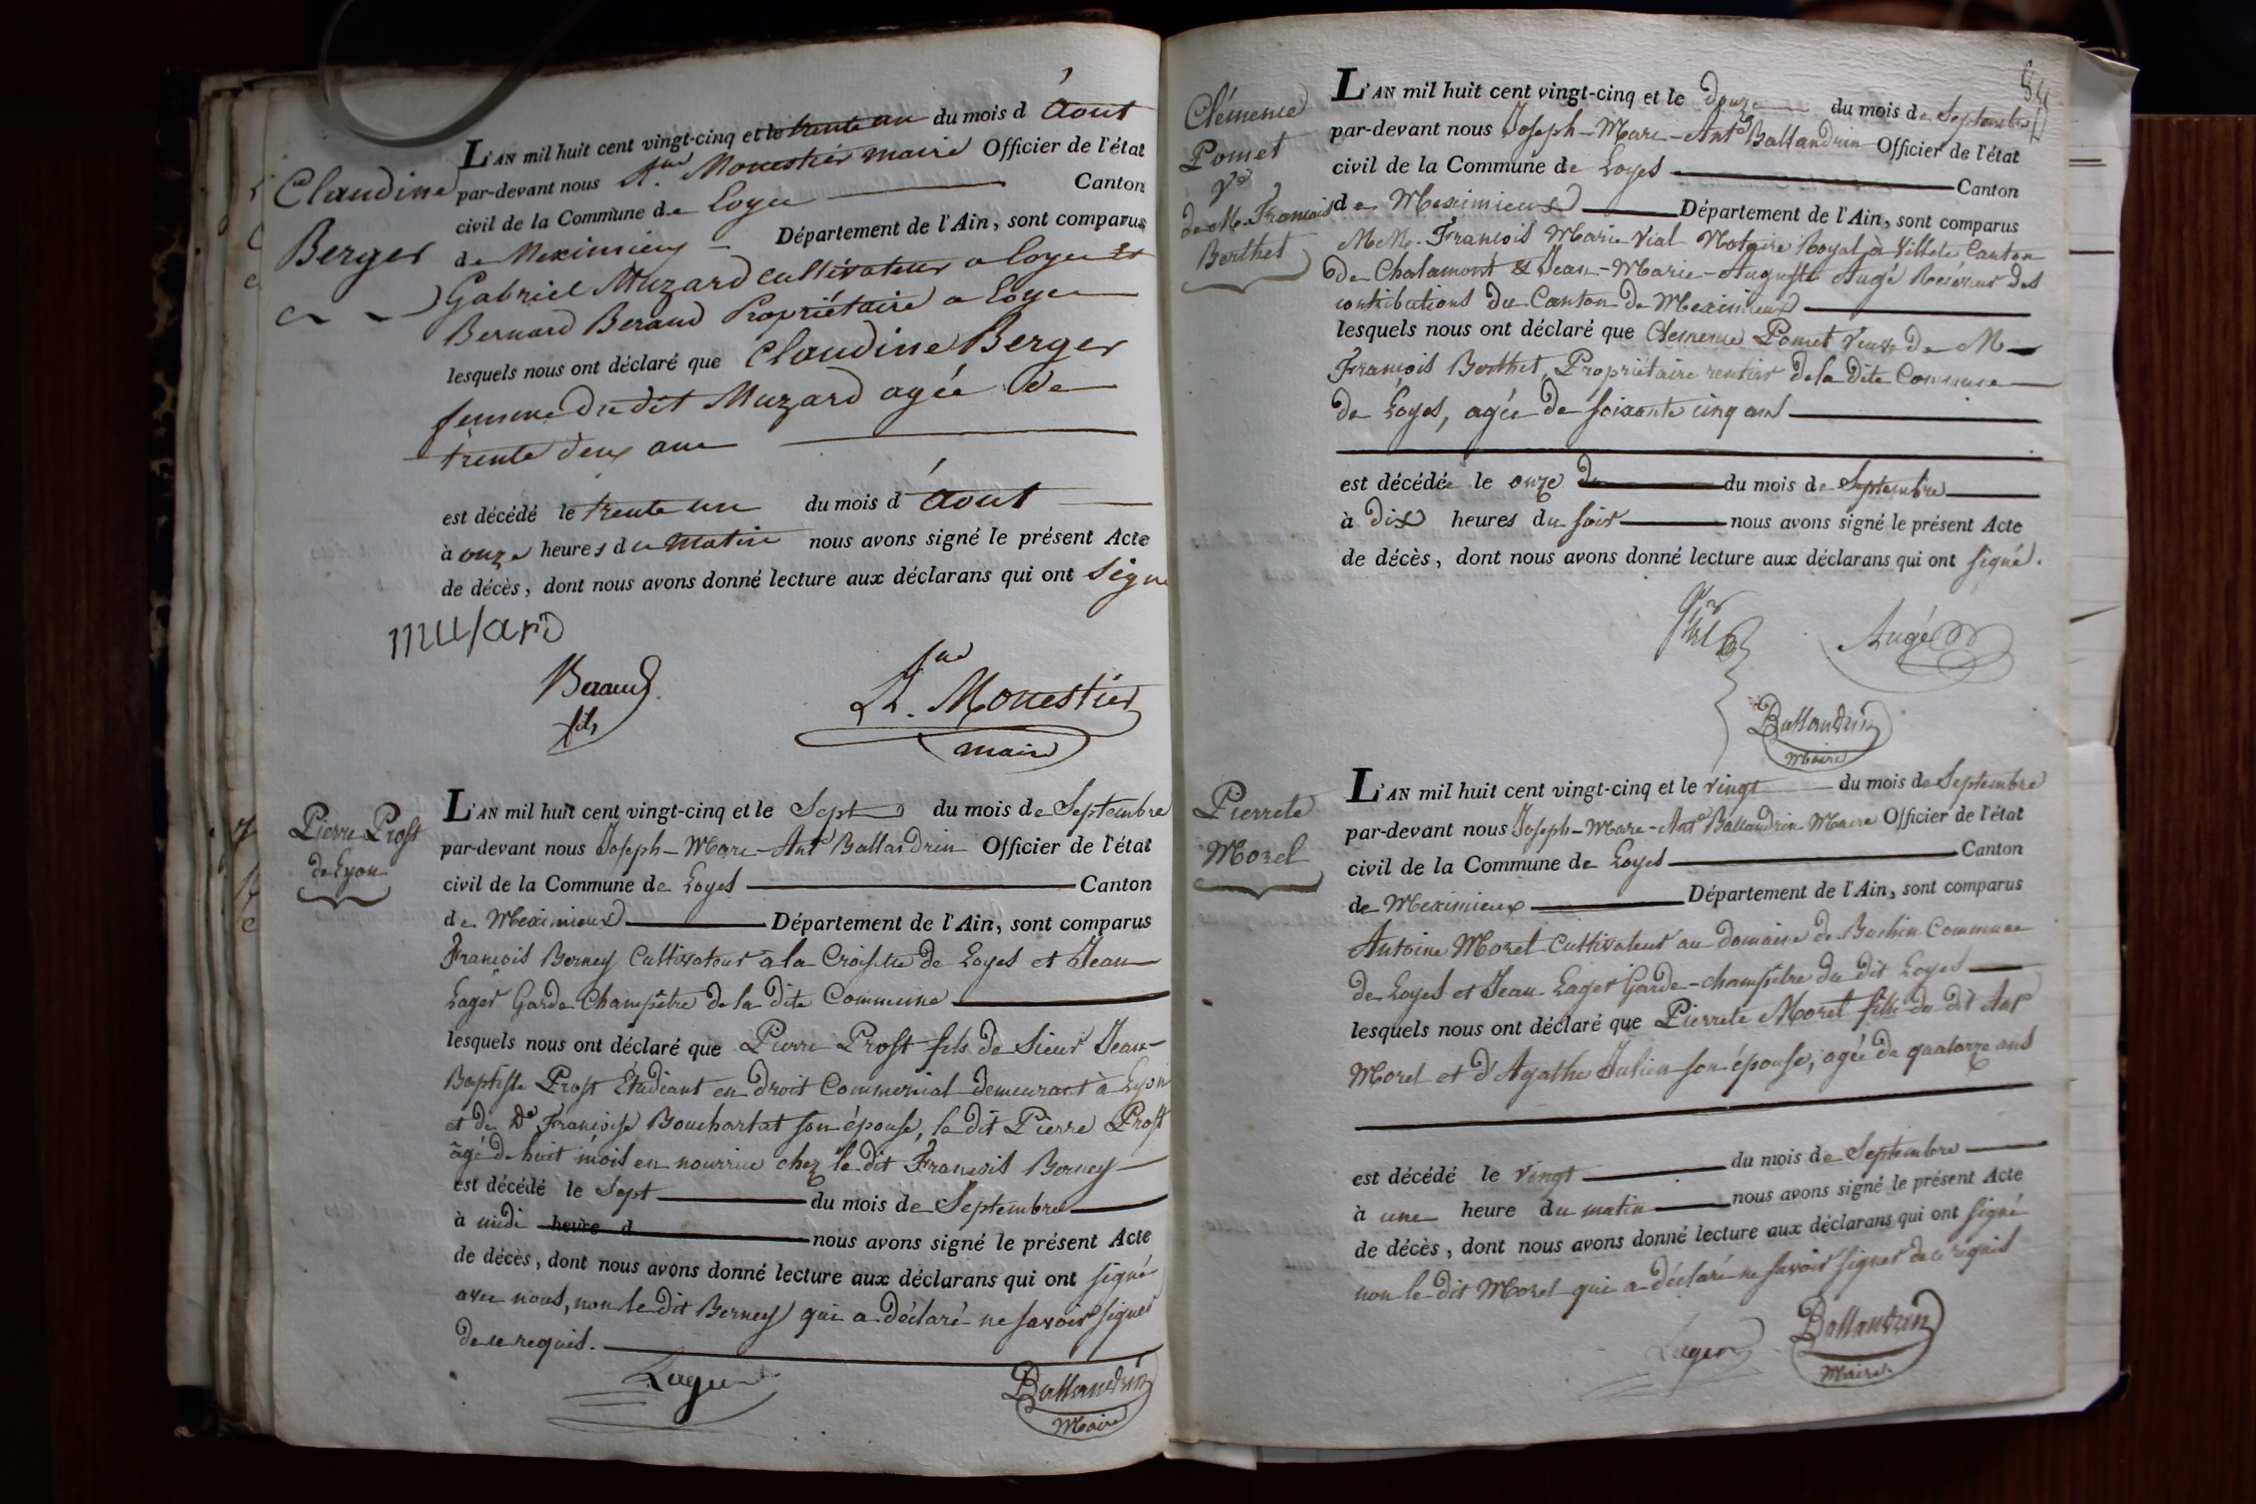 Claudine
Berger
L'AN mil huit cent vingt-cinq et le trente un du mois d Août
par-devant nous Monestier maire Officier de l'état
civil de la Commune de Loyes Canton
de Meximieux Département de l'Ain, sont comparus
Gabriel Muzard cultivateur a Loyes Et
Bernard Beraud Propriétaire a Loyes
lesquels nous ont déclaré que Claudine Berger
femme du dit Muzard agée de
trente deux ans
est décédé le trente un du mois d Août
à onze heures du matin nous avons signé le présent Acte
de décès, dont nous avons donné lecture aux déclarans qui ont signé
musard
Beraud
fils
Monestier
maire
Pierre Prost
de Lyon
L'AN mil huit cent vingt-cinq et le Sept du mois de Septembre
par-devant nous Joseph-Marc-Ant.e Ballandrin Officier de l'état
civil de la Commune de Loyes Canton
de Meximieux Département de l'Ain, sont comparus
François Berney Cultivateur à la Croisette de Loyes et Jean
Lager Garde Champêtre de la dite Commune
lesquels nous ont déclaré que Pierre Prost fils de Sieur Jean-
Baptiste Prost Étudiant en droit Commercial demeurant à Lyon
et de De Françoise Bouchartat son épouse, le dit Pierre Prost
âgé de huit mois en nourrice chez le dit François Berney
est décédé le Sept du mois de Septembre
à midi heure d nous avons signé le présent Acte
de décès, dont nous avons donné lecture aux déclarans qui ont signé
avec nous, non le dit Berney qui a déclaré ne savoir signer
de ce requis.
Lager
Ballandrin
Maire
Clémence
Pomet
Ve
de M. François
Berthet
L'AN mil huit cent vingt-cinq et le douze du mois de Septembre
par-devant nous Joseph-Marc-Ant.e Ballandrin Officier de l'état
civil de la Commune de Loyes Canton
de Meximieux Département de l'Ain, sont comparus
MM. François Marie Vial Notaire Royal à Villete Canton
de Chalamont & Jean-Marie-Auguste Augé Receveur des
contributions du Canton de Meximieux
lesquels nous ont déclaré que Clémence Pomet Veuve de M
François Berthet, Propriétaire rentier de la dite Commune
de Loyes, agée de soixante cinq ans
est décédée le onze du du mois de Septembre
à dix heures du soir nous avons signé le présent Acte
de décès, dont nous avons donné lecture aux déclarans qui ont signé.
Augé
Ballandrin
Maire
Pierrete
Morel
L'AN mil huit cent vingt-cinq et le vingt du mois de Septembre
par-devant nous Joseph-Marc-Ant.e Ballandrin Maire Officier de l'état
civil de la Commune de Loyes Canton
de Meximieux Département de l'Ain, sont comparus
Antoine Morel Cultivateur au domaine de Buchin Commune
de Loyes et Jean Lager Garde-champêtre du dit Loyes
lesquels nous ont déclaré que Pierrete Morel fille du dit Ant.e
Morel et d'Agathe Julien son épouse, agée de quatorze ans
est décédé le vingt du mois de Septembre
à une heure du matin nous avons signé le présent Acte
de décès, dont nous avons donné lecture aux déclarans qui ont signé
non le dit Morel qui a déclaré ne savoir signer de ce requis
Lager
Ballandrin
Maire